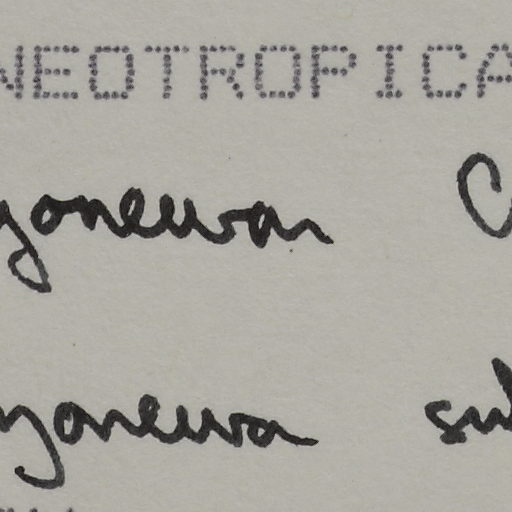 NEOTROPICA
yoneura C
yoneura su